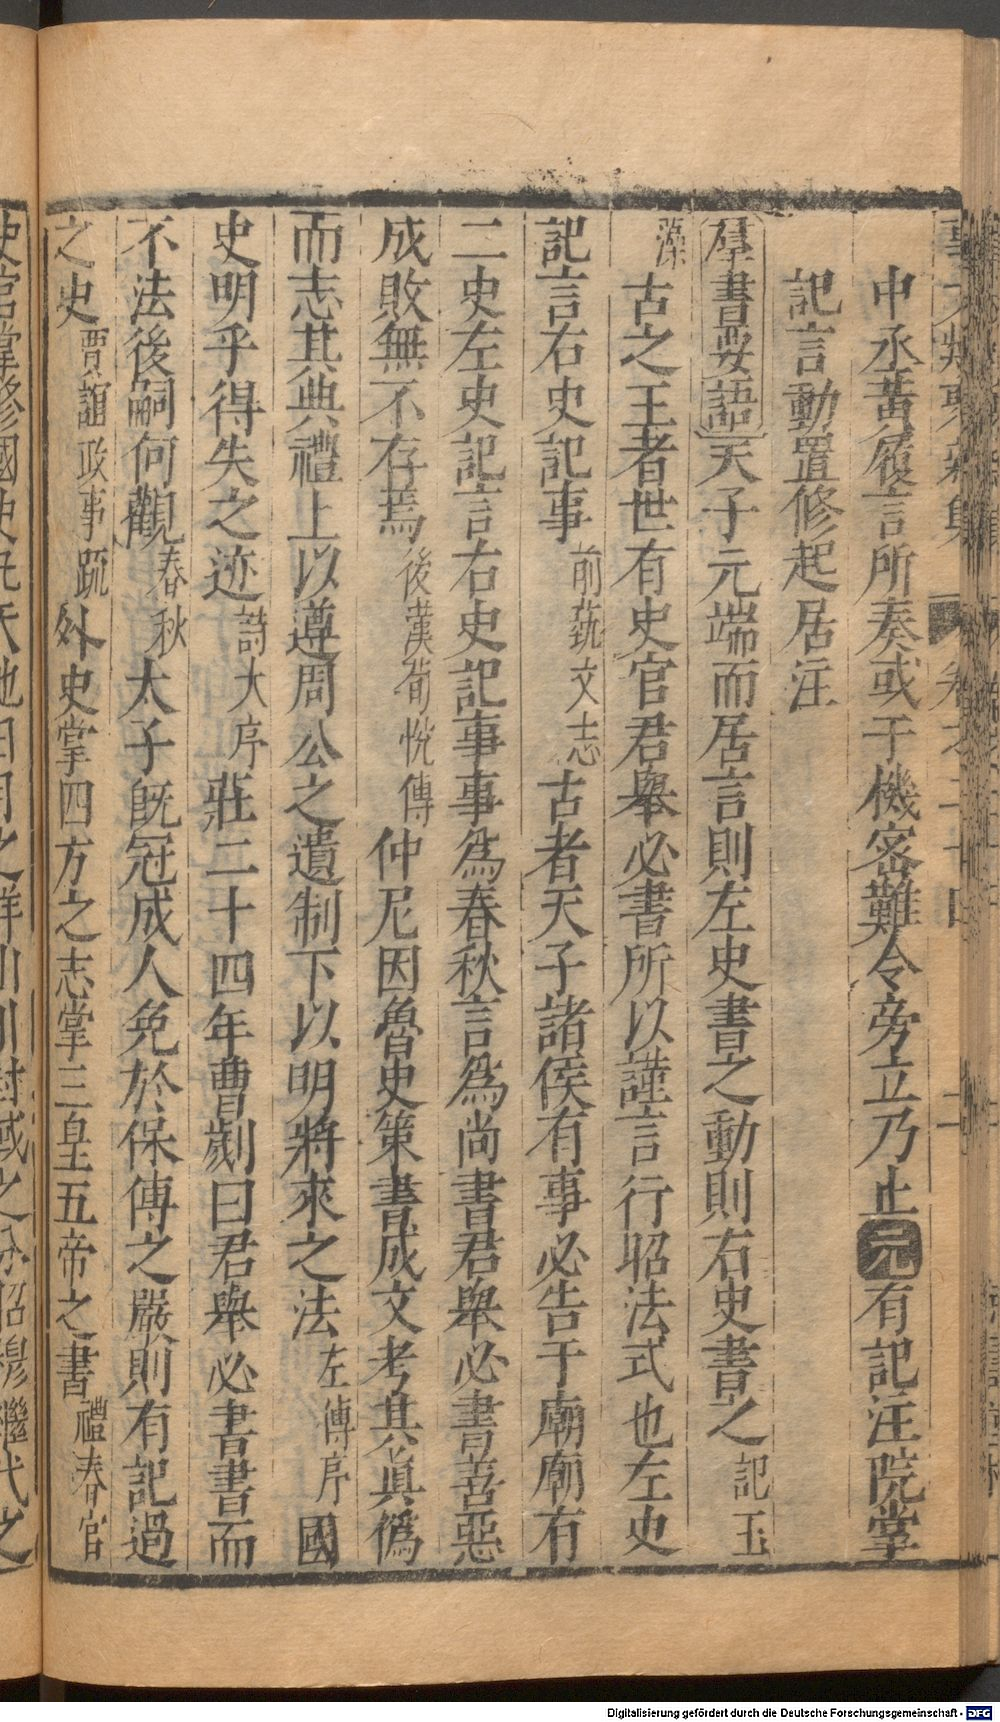 中丞黃履言所奏或于機密難令旁立乃止元有記注院掌
記言動置修起居注
羣書要語天子元端而居言則左史書之動則右史書之記玉
藻古之王者世有史官君舉必書所以謹言行昭法式也左史
記言右史記事前藝文志古者天子諸侯有事必告于廟廟有
二史左史記言右史記事事爲春秋言爲尚書君舉必書善惡
成敗無不存焉後漢荀悅傳仲尼因魯史策書成文考其眞僞
而志其典禮上以遵周公之遺制下以明將來之法左傳序國
史明乎得失之迹詩大序莊二十四年曹劌曰君舉必書書而
不法後嗣何觀春秋太子旣冠成人免於保傅之嚴則有記過
之史賈誼政事疏外史掌四方之志掌三皇五帝之書禮春官
Digitalisierung gefördert durch die Deutsche Forschungsgemeinschaft - DFG